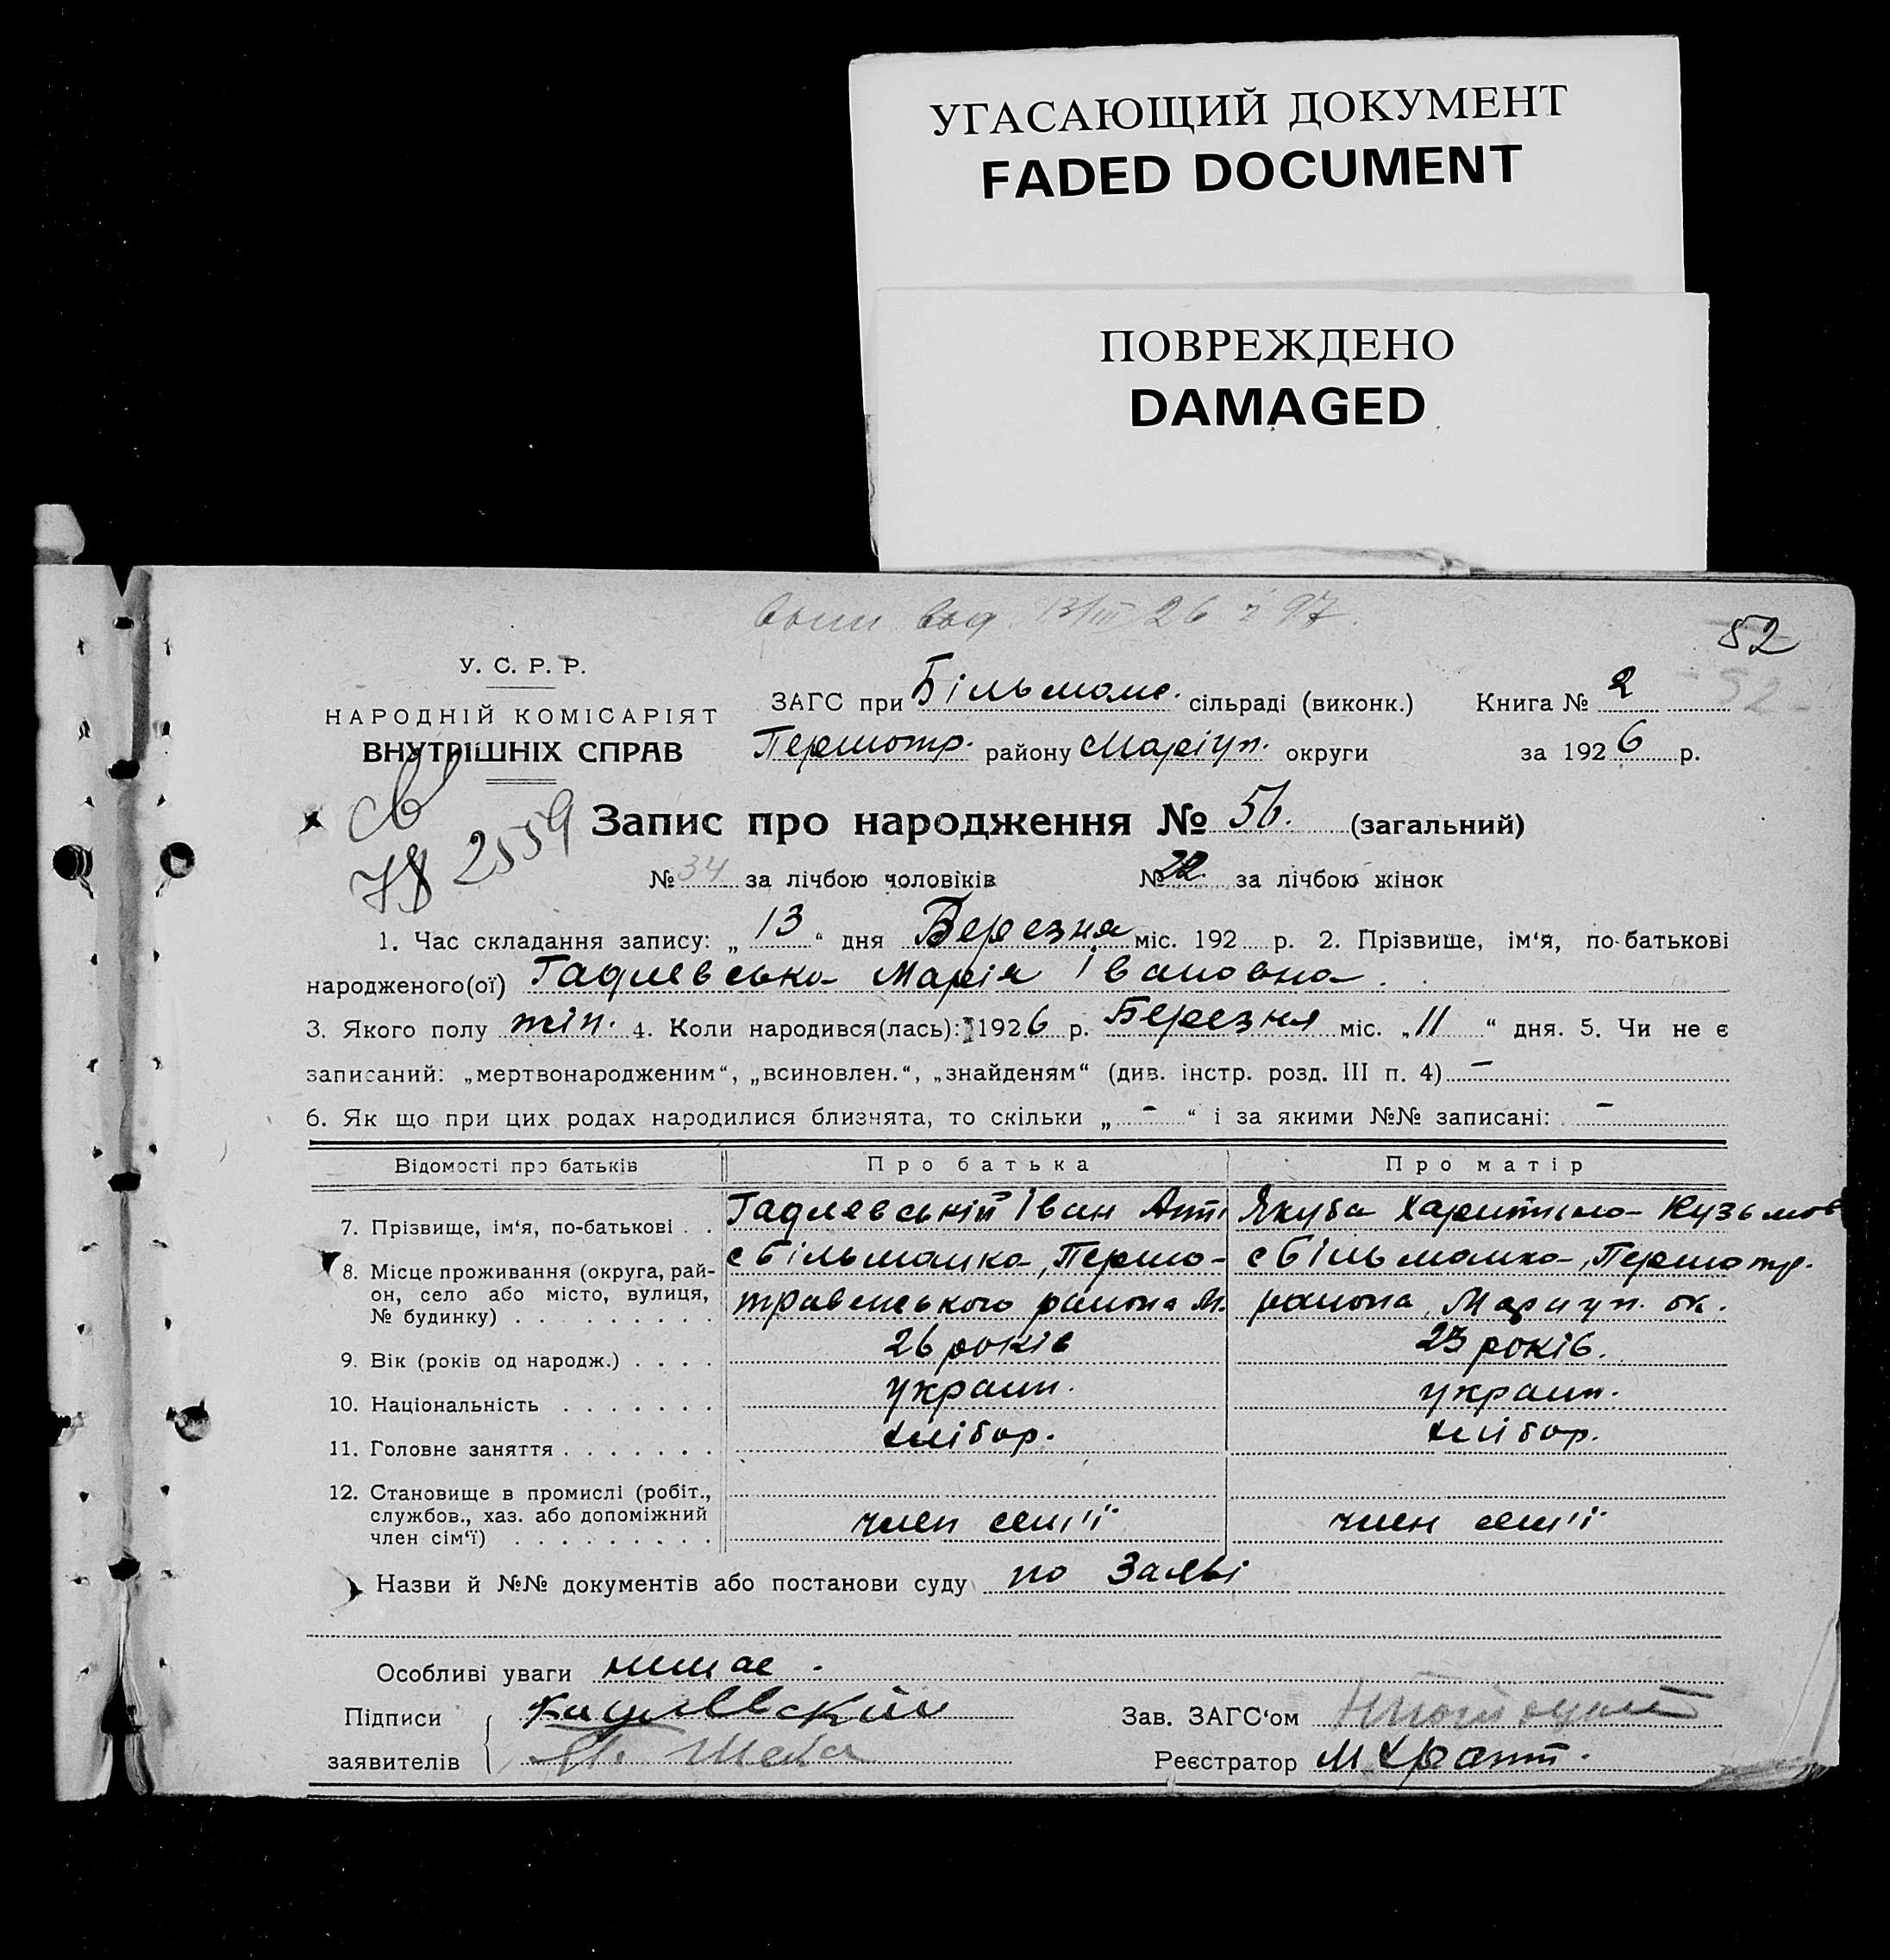 УГАСАЮЩИЙ ДОКУМЕНТ
FADED DOCUMENT
ПОВРЕЖДЕНО
DAMAGED
13/III 26 97.
52
У. С. Р. Р.
НАРОДНІЙ КОМІСАРІЯТ
ВНУТРІШНІХ СПРАВ
ЗАГС при Більмом. сільраді (виконк.) Книга № 2 52
Першотр. району Маріуп. округи за 1926 р.
78 2559
Запис про народження № 56. (загальний)
№ 34 за лічбою чоловіків № 22. за лічбою жінок
1. Час складання запису: „ 13 “ дня Березня міс. 192 р. 2. Прізвище, ім‘я, по-батькові
народженого(ої) Гадлевська Марія Івановна
3. Якого полу жін. 4. Коли народився(лась): 1926 р. Березня міс. „ 11 “ дня. 5. Чи не є
записаний: „мертвонародженим“, „всиновлен.“, „знайденям“ (див. інстр. розд. III п. 4) –
6. Як що при цих родах народилися близнята, то скільки „ – “ і за якими №№ записані: –
Відомості про батьків Про батька Про матір
7. Прізвище, ім‘я, по-батькові . . Гадлевський Іван Ант. Якуба Харитина Кузьмов
8. Місце проживання (округа, рай- с Більманка, Першо- с Більманка, Першотр.
он, село або місто, вулиця, травенського района М. района, Мариуп. ок.
№ будинку) . . . . . . . . .
9. Вік (років од народж.) . . . . 26 років 23 років.
10. Національність . . . . . . . україн. україн.
11. Головне заняття . . . . . . . хлібор. хлібор.
12. Становище в промислі (робіт.,
службов., хаз. або допоміжний член сем'ї член сем'ї
член сім‘ї) . . . . . . . . .
Назви й №№ документів або постанови суду по Заяві
Особливі уваги немає.
Підписи Гадлевский Зав. ЗАГС‘ом
заявителів Реєстратор